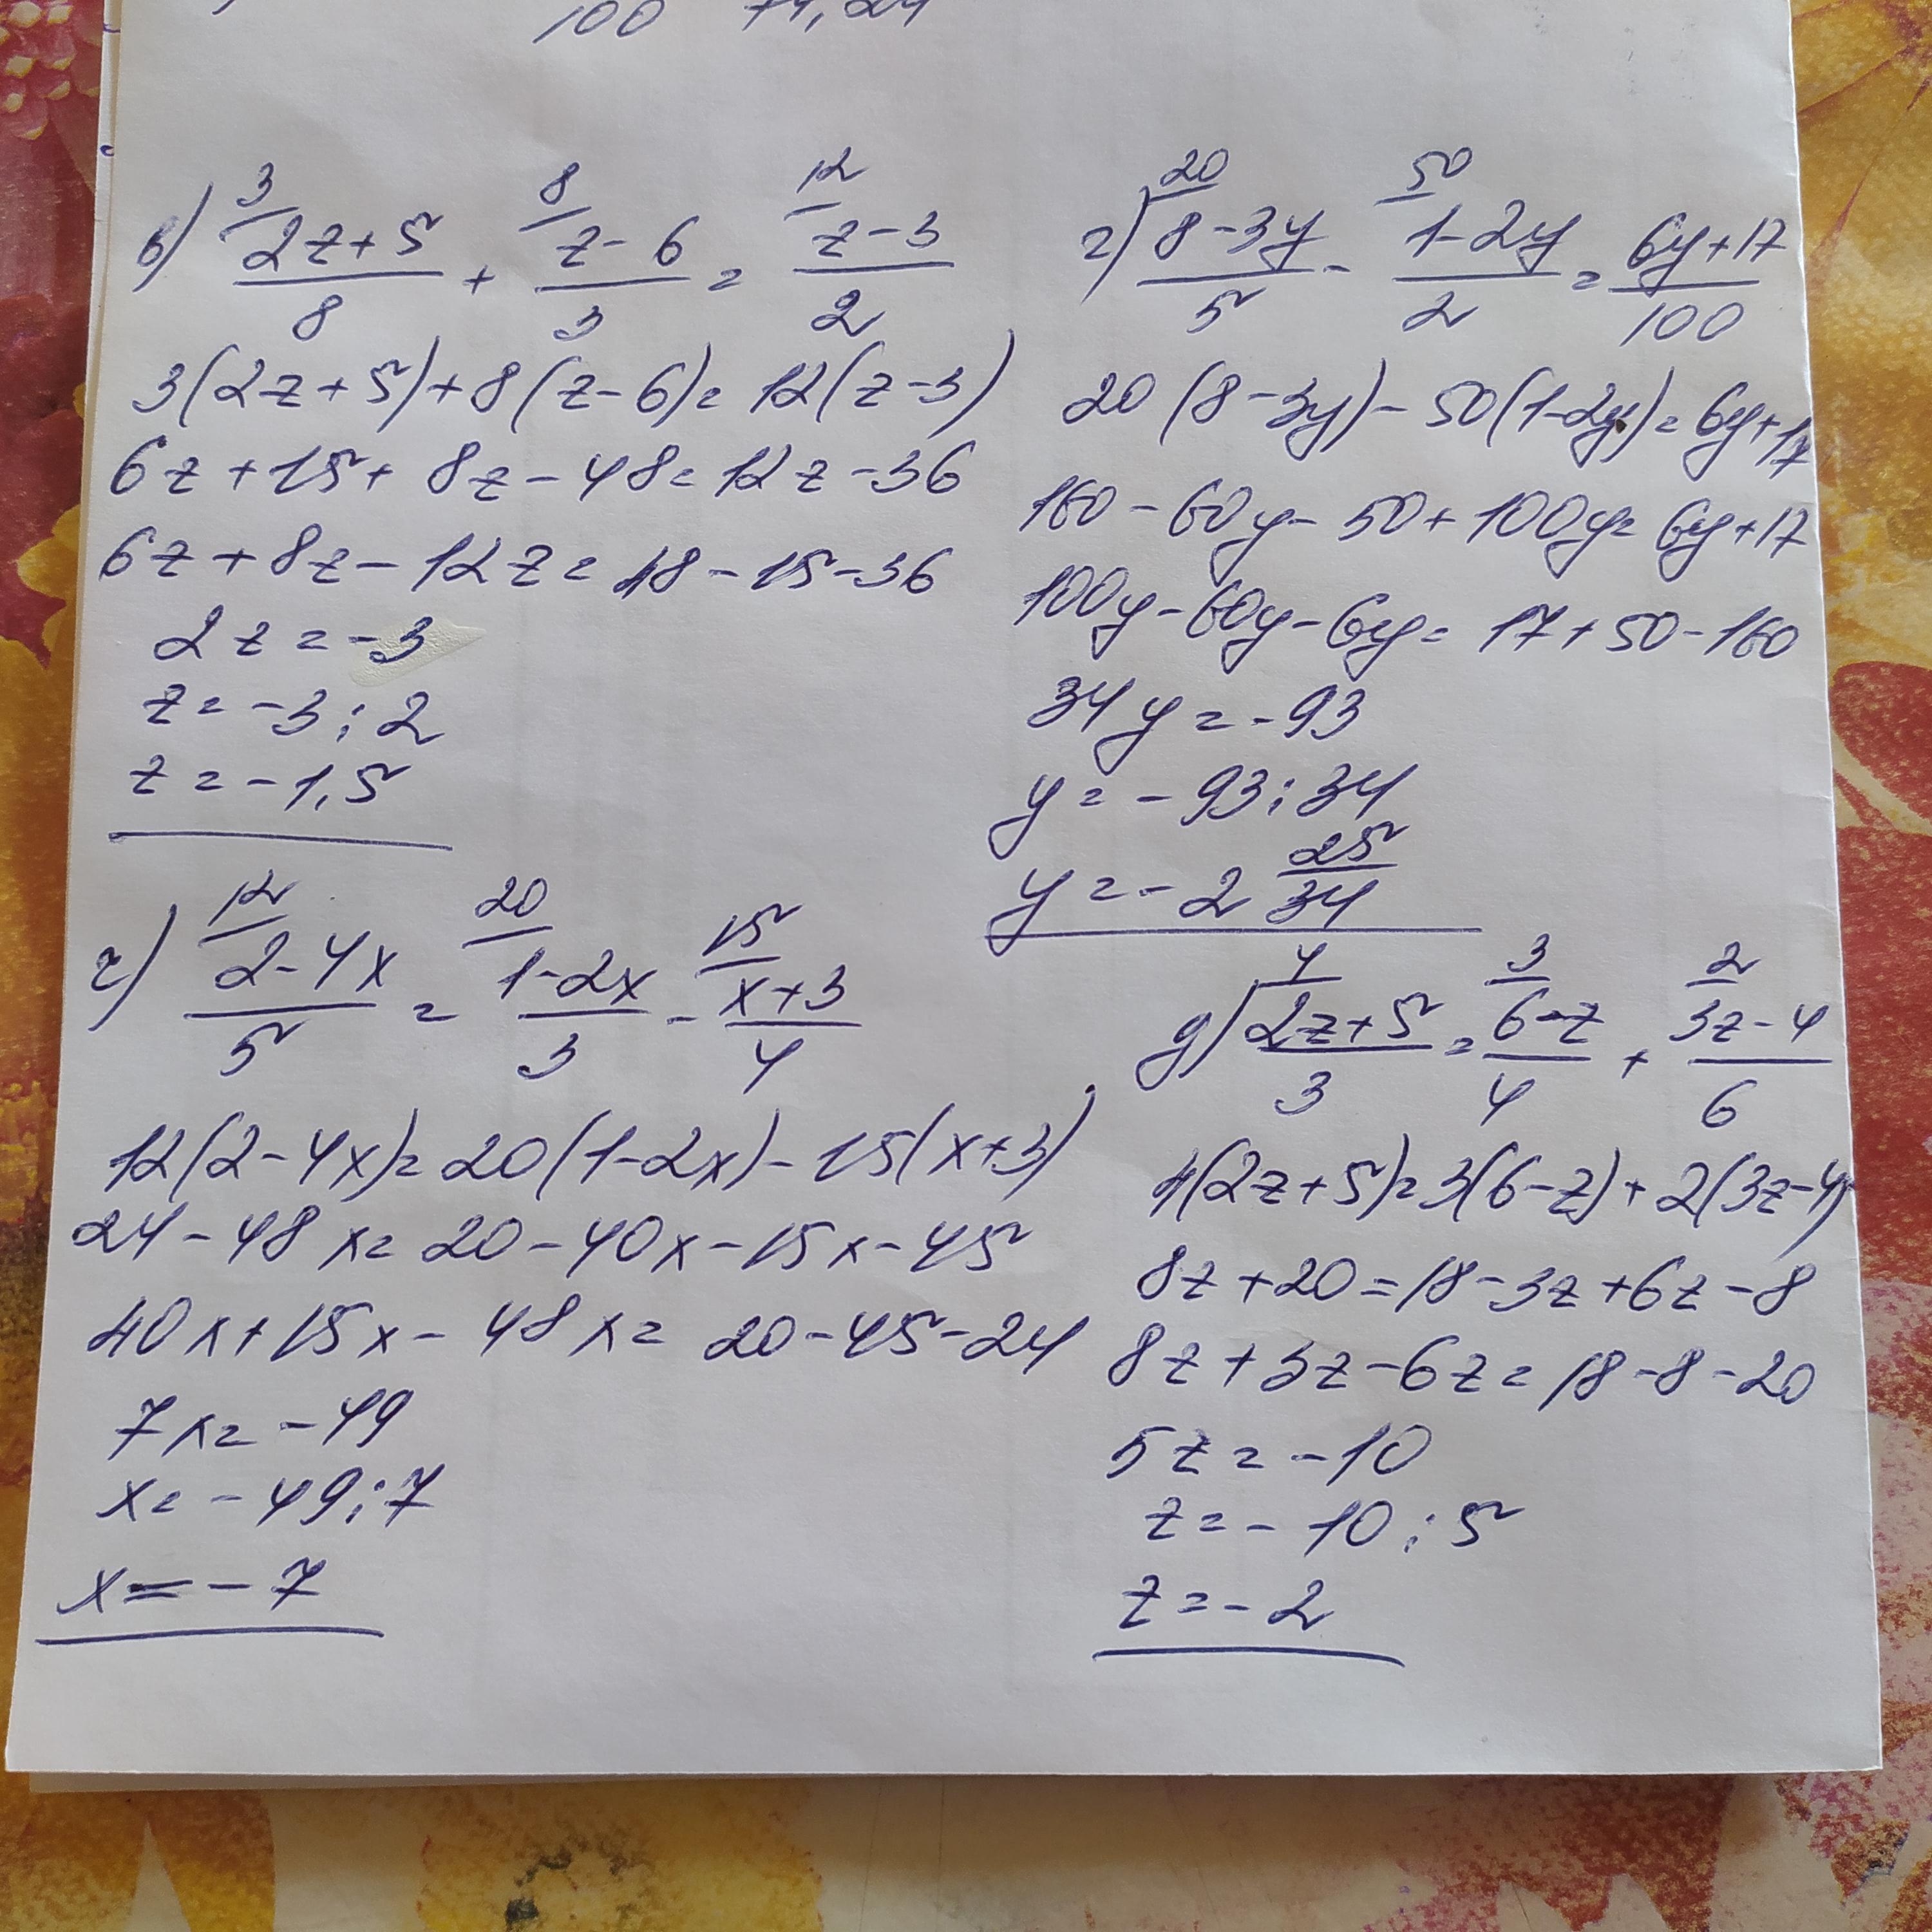 100 74,24
в) 3/ (2z+5)/8 + 8/ (z-6)/3 = 12/ (z-3)/2
3(2z+5)+8(z-6)=12(z-3)
6z+15+8z-48=12z-36
6z+8z-12z=48-15-36
2z=-3
z=-3:2
z=-1,5
г) 20/ (8-3y)/5 - 50/ (1-2y)/2 = (6y+17)/100
20(8-3y)-50(1-2y)=6y+17
160-60y-50+100y=6y+17
100y-60y-6y=17+50-160
34y=-93
y=-93:34
y=-2 25/34
г) 12/ (2-4x)/5 = 20/ (1-2x)/3 - 15/ (x+3)/4
12(2-4x)=20(1-2x)-15(x+3)
24-48x=20-40x-15x-45
40x+15x-48x=20-45-24
7x=-49
x=-49:7
x=-7
g) 4/ (2z+5)/3 = 3/ (6-z)/4 + 2/ (3z-4)/6
4(2z+5)=3(6-z)+2(3z-4)
8z+20=18-3z+6z-8
8z+3z-6z=18-8-20
5z=-10
z=-10:5
z=-2